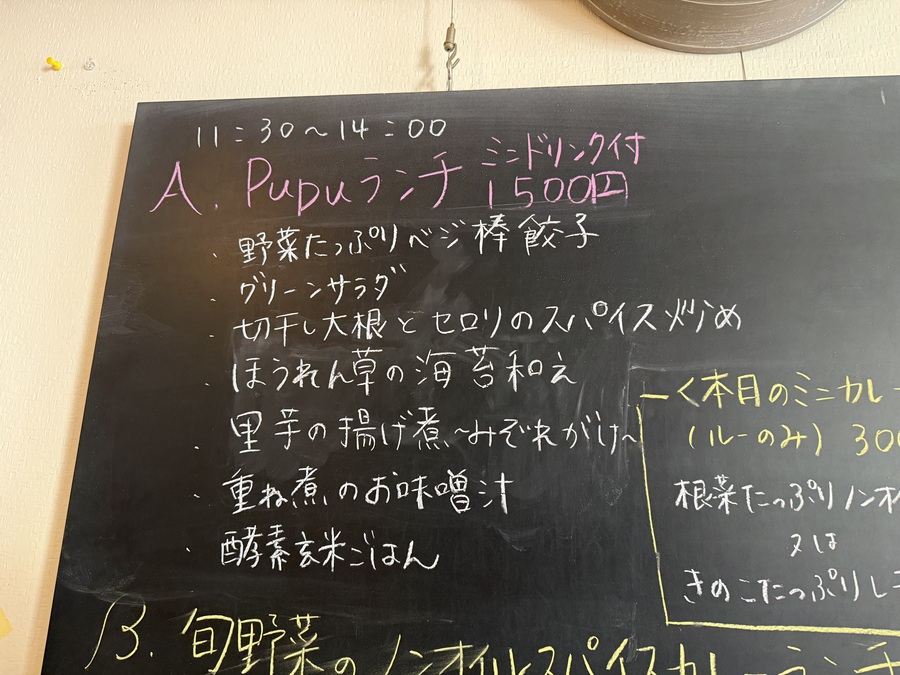 11:30〜14:00
A. Pupuランチ ミニドリンク付
1500円
・野菜たっぷりベジ棒餃子
・グリーンサラダ
・切干し大根とセロリのスパイス炒め
・ほうれん草の海苔和え
・里芋の揚げ煮〜みぞれがけ〜
・重ね煮のお味噌汁
・酵素玄米ごはん
く本日のミニカレー
(ルーのみ) 300
根菜たっぷりノンオイ
又は
きのこたっぷり
B. 旬野菜のノンオイルスパイスカレーランチ